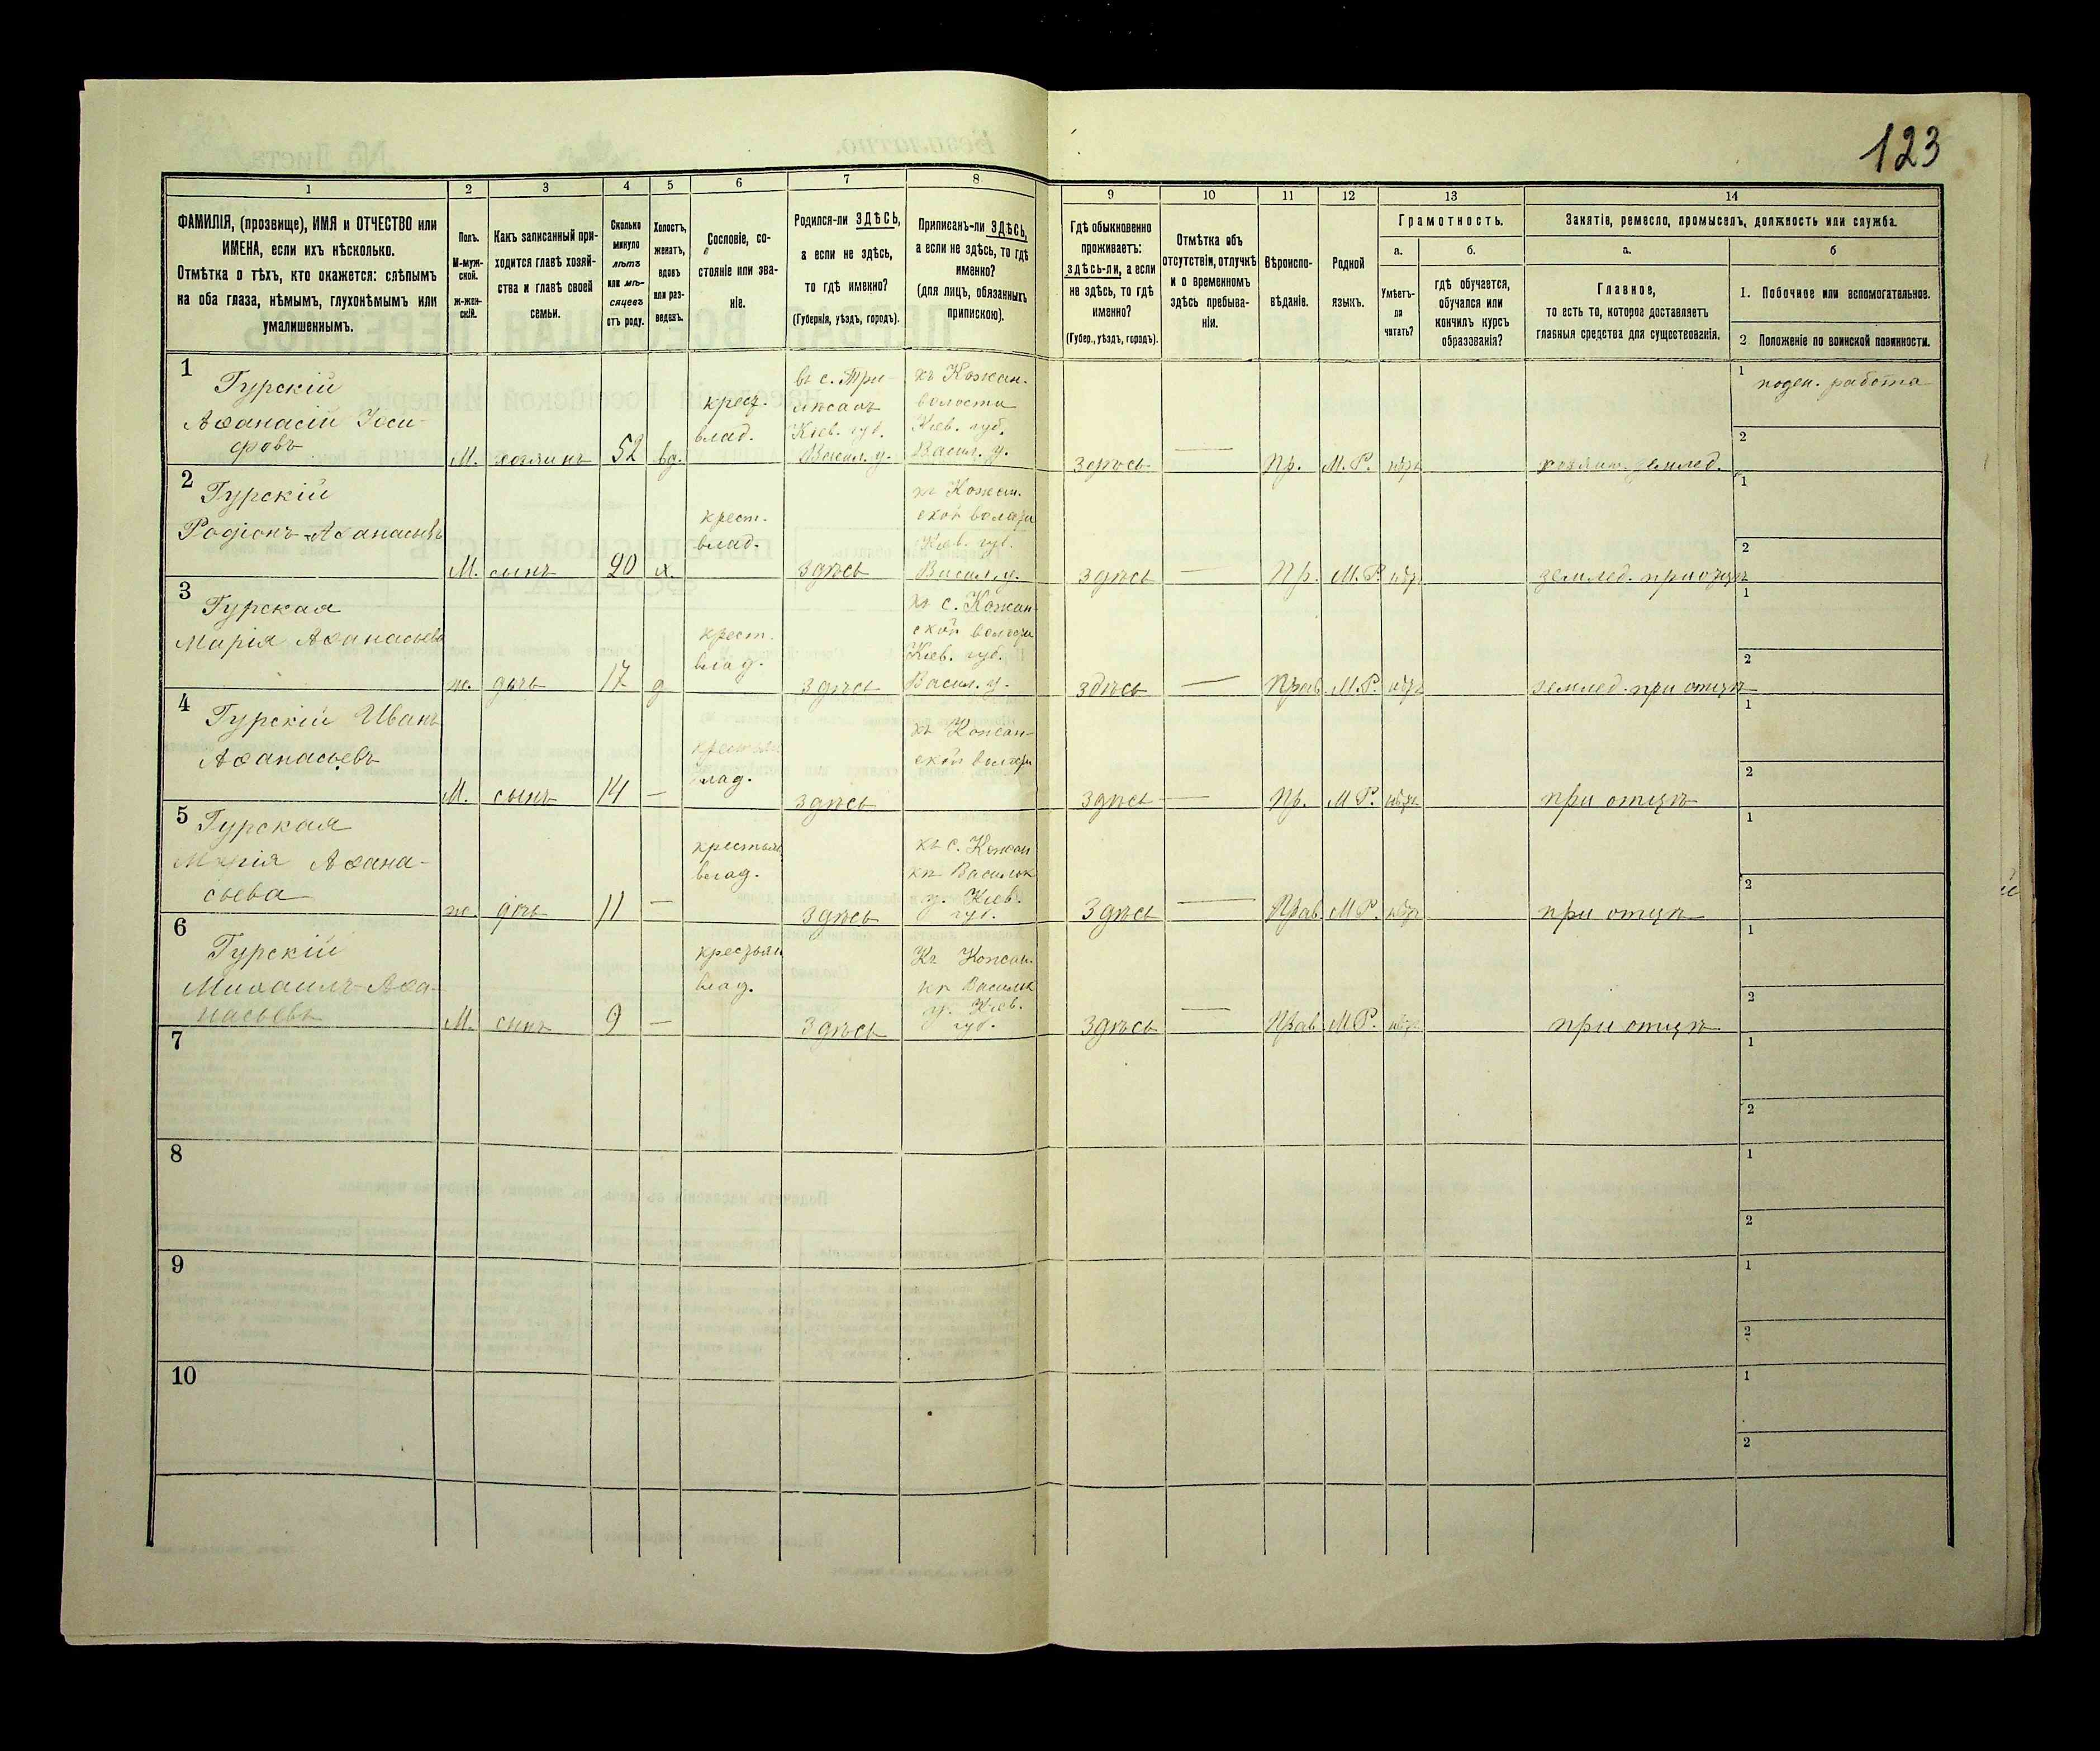 123
1 2 3 4 5 6 7 8 9 10 11 12 13 14
ФАМИЛІЯ, (прозвище), ИМЯ и ОТЧЕСТВО или
ИМЕНА, если ихъ нѣсколько.
Отмѣтка о тѣхъ, кто окажется: слѣпымъ
на оба глаза, нѣмымъ, глухонѣмымъ или
умалишеннымъ.
Полъ.
М-муж-
ской.
ж-жен-
скій.
Какъ записанный при-
ходится главѣ хозяй-
ства и главѣ своей
семьи.
Сколько
минуло
лѣтъ
или мѣ-
сяцевъ
отъ роду.
Холостъ,
женатъ,
вдовъ
или раз-
веденъ.
Сословіе, со-
стояніе или зва-
ніе.
Родился-ли ЗДѢСЬ,
а если не здѣсь,
то гдѣ именно?
(Губернія, уѣздъ, городъ).
Приписанъ-ли ЗДѢСЬ,
а если не здѣсь, то гдѣ
именно?
(для лицъ, обязанныхъ
припискою).
Гдѣ обыкновенно
проживаетъ:
здѣсь-ли, а если
не здѣсь, то гдѣ
именно?
(Губер., уѣздъ, городъ).
Отмѣтка объ
отсутствіи, отлучкѣ
и о временномъ
здѣсь пребыва-
ніи.
Вѣроиспо-
вѣданіе.
Родной
языкъ.
Грамотность.
а.
Умѣетъ-
ли
читать?
б.
гдѣ обучается,
обучался или
кончилъ курсъ
образованія?
Занятіе, ремесло, промыселъ, должность или служба.
а.
Главное,
то есть то, которое доставляетъ
главныя средства для существованія.
б
1. Побочное или вспомогательное.
2 Положеніе по воинской повинности.
1
Гурскій
Аѳанасій Іоси-
фовъ
М. хозяинъ 52 вд.
крест.
влад.
въ с. Три-
лѣсахъ
Кіев. губ.
Васил. у.
къ Кожан.
волости
Кіев. губ.
Васил. у.
здѣсь — Пр. М. Р. нѣтъ хозяин. землед.
1 поден. работа
2
2
Гурскій
Родіонъ Аѳанасьевъ
М. сынъ 20 х.
крест.
влад.
здѣсь
къ Кожан.
ской волости
Кіев. губ.
Васил. у.
здѣсь — Пр. М. Р. нѣтъ землед. при отцѣ
1
2
3
Гурская
Марія Аѳанасьева
ж. дочь 17 д
крест.
влад.
здѣсь
къ с. Кожан
ской волости
Кіев. губ.
Васил. у.
здѣсь — Прав М. Р. нѣтъ землед. при отцѣ
1
2
4
Гурскій Иванъ
Аѳанасьевъ
М. сынъ 14 —
крестьян
влад.
здѣсь
къ Кожан-
ской волости
здѣсь — Пр. М Р. нѣтъ при отцѣ
1
2
5
Гурская
Марія Аѳана-
сьева
ж. дочь 11 —
крестьян
влад.
здѣсь
къ с. Кожан
кѣ Васильк
у. Кіев.
губ.
здѣсь — Прав М Р. нѣтъ при отцѣ
1
2
6
Гурскій
Михаилъ Аѳа-
насьевъ
М. сынъ 9 —
крестьян
влад.
здѣсь
Къ Кожан.
кѣ Васильк
у. Кіев.
губ.
здѣсь — Прав М Р. нѣтъ при отцѣ
1
2
7
1
2
8
1
2
9
1
2
10
1
2